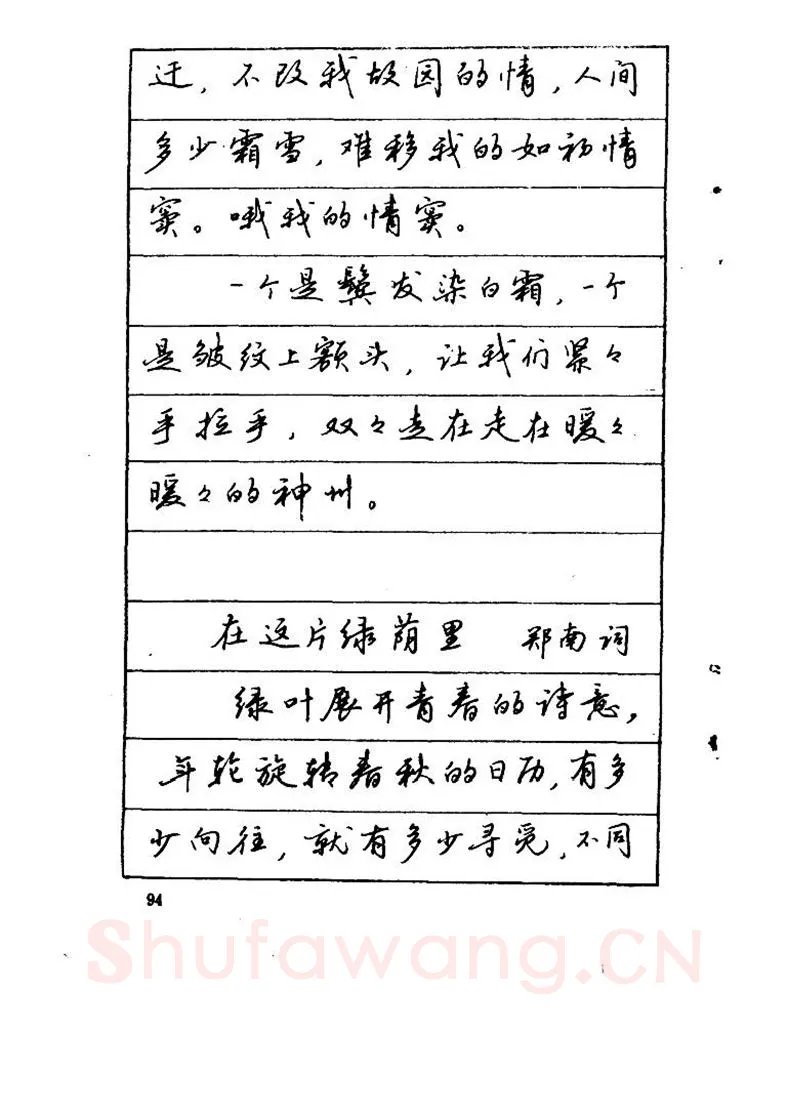 迁，不改我故园的情，人间
多少霜雪，难移我的如初情
窦。哦我的情窦。
一个是鬓发染白霜，一个
是皱纹上额头，让我们紧々
手拉手，双々走在走在暖々
暖々的神州。
在这片绿荫里 郑南词
绿叶展开青春的诗意，
年轮旋转春秋的日历，有多
少向往，就有多少寻觅，不同
94
Shufawang.CN